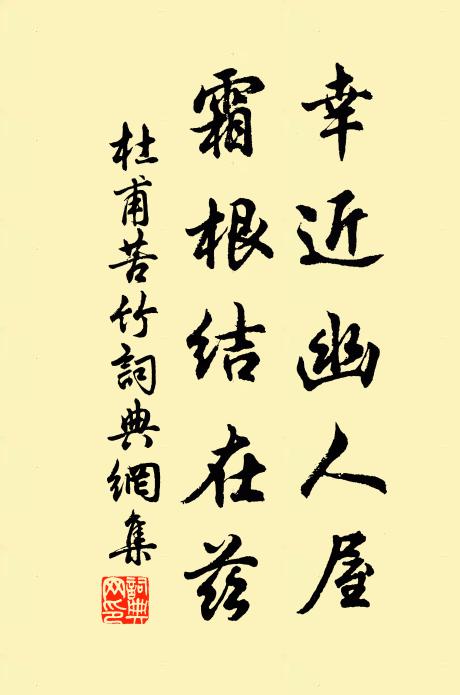 幸近幽人屋
霜根結在茲
杜甫苦竹詞典網集
詞典網印